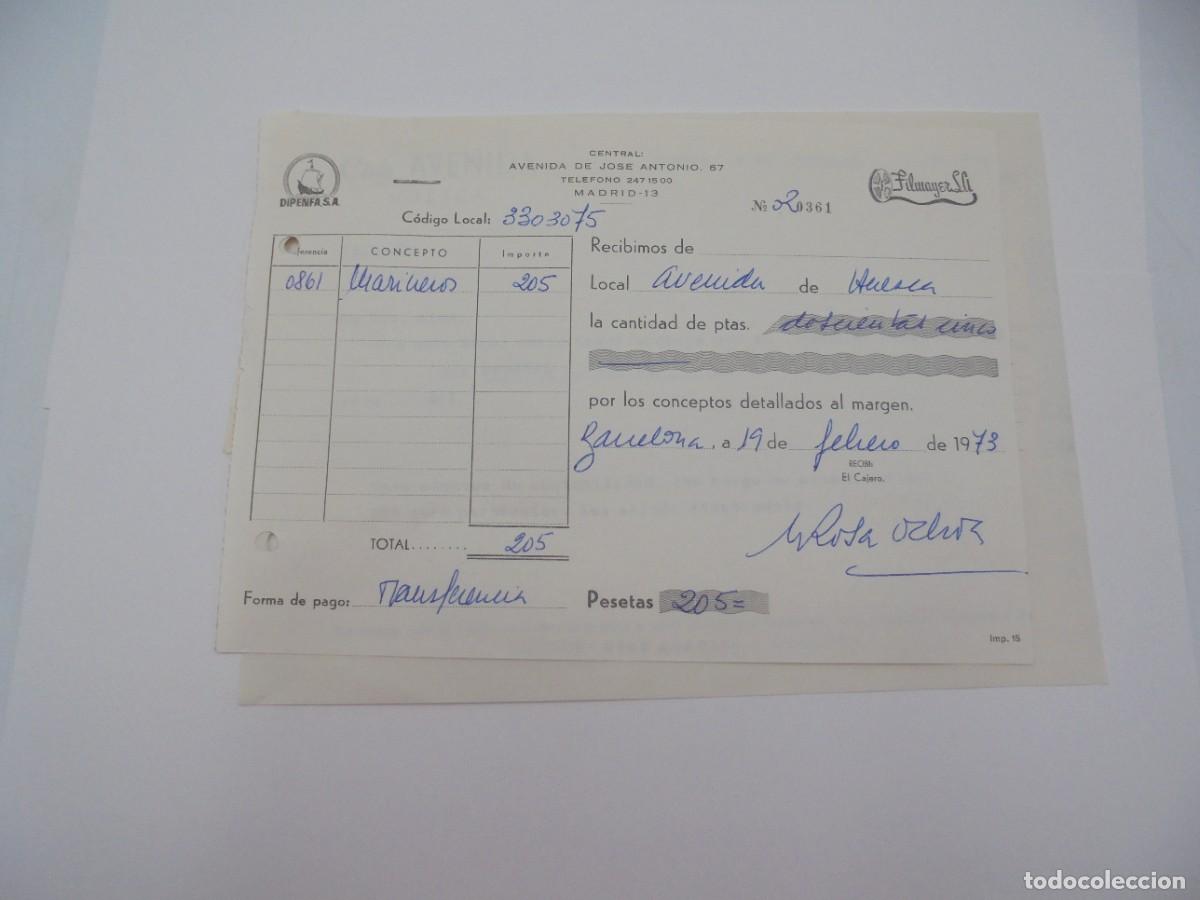 CENTRAL:
AVENIDA DE JOSE ANTONIO, 67
TELEFONO 247 15 00
MADRID-13
DIPENFA, S.A.
Filmayer S.A.
Nº 020361
Código Local: 3303075
ferencia CONCEPTO Importe
0861 Marineros 205
TOTAL........ 205
Forma de pago: Transferencia
Recibimos de
Local Avenida de Huesca
la cantidad de ptas. doscientas cinco
por los conceptos detallados al margen.
Barcelona, a 19 de febrero de 1973
RECIBI:
El Cajero.
Rosa Ochoa
Pesetas 205=
Imp. 15
todocoleccion